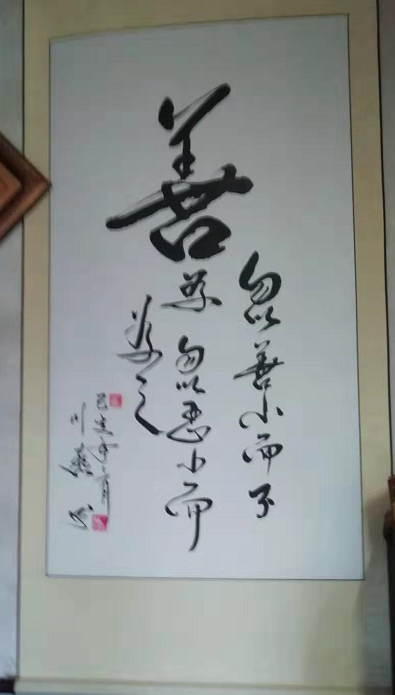 善
勿以善小而不
為 勿以恶小而
為之
己亥年